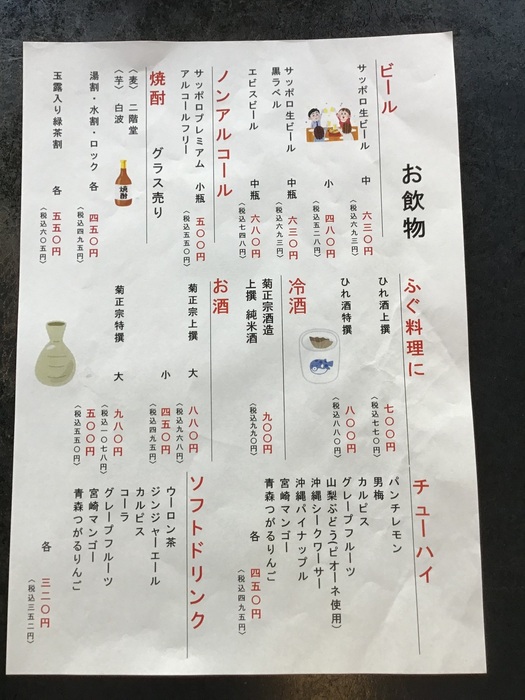 お飲物
ビール
サッポロ生ビール 中 六三〇円
(税込六九三円)
小 四八〇円
(税込五二八円)
サッポロ生ビール
黒ラベル 中瓶 六三〇円
(税込六九三円)
エビスビール 中瓶 六八〇円
(税込七四八円)
ノンアルコール
サッポロプレミアム
アルコールフリー 小瓶 五〇〇円
(税込五五〇円)
焼酎 グラス売り
〈麦〉 二階堂
〈芋〉 白波
焼酎
湯割・水割・ロック 各 四五〇円
(税込四九五円)
玉露入り緑茶割 各 五五〇円
(税込六〇五円)
ふぐ料理に
ひれ酒上撰 七〇〇円
(税込七七〇円)
ひれ酒特撰 八〇〇円
(税込八八〇円)
冷酒
菊正宗酒造
上撰 純米酒 九〇〇円
(税込九九〇円)
お酒
菊正宗上撰 大 八八〇円
(税込九六八円)
小 四五〇円
(税込四九五円)
菊正宗特撰 大 九八〇円
(税込一〇七八円)
五〇〇円
(税込五五〇円)
チューハイ
パンチレモン
男梅
カルピス
グレープフルーツ
山梨ぶどう(ピオーネ使用)
沖縄シークワーサー
沖縄パイナップル
宮崎マンゴー
青森つがるりんご
各 四五〇円
(税込四九五円)
ソフトドリンク
ウーロン茶
ジンジャーエール
カルピス
コーラ
グレープフルーツ
宮崎マンゴー
青森つがるりんご
各 三二〇円
(税込三五二円)